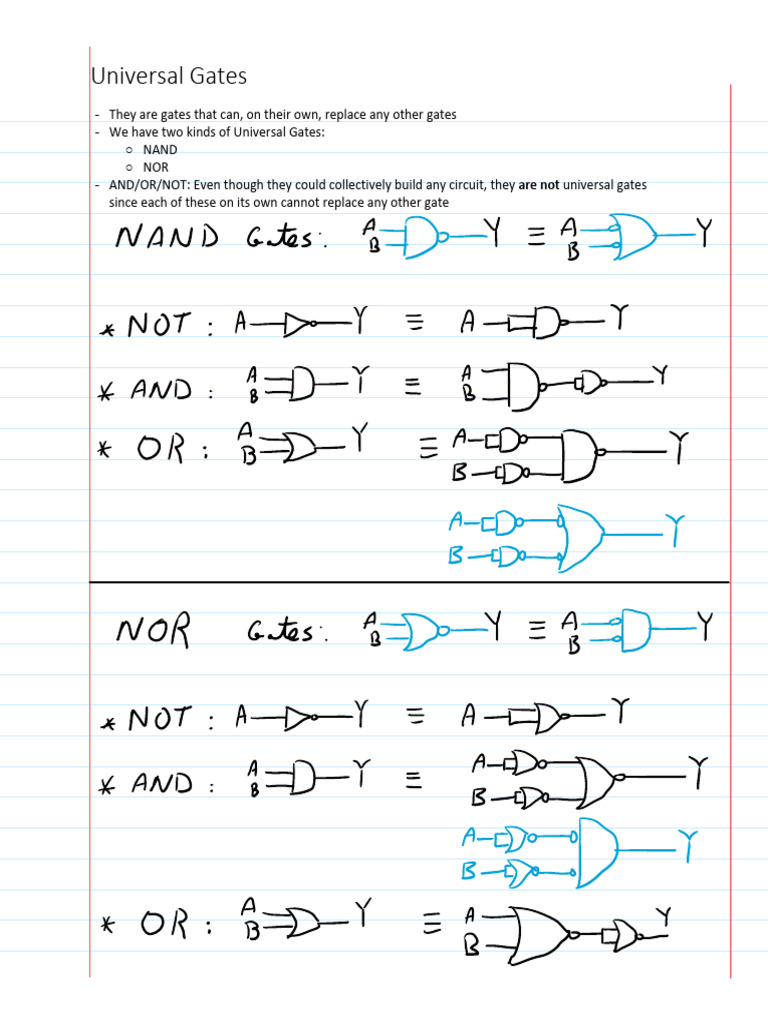 Universal Gates
- They are gates that can, on their own, replace any other gates
- We have two kinds of Universal Gates:
o NAND
o NOR
- AND/OR/NOT: Even though they could collectively build any circuit, they are not universal gates
since each of these on its own cannot replace any other gate
NAND Gates: A B Y ≡ A B Y
* NOT: A Y ≡ A Y
* AND: A B Y ≡ A B Y
* OR: A B Y ≡ A B Y
A B Y
NOR Gates: A B Y ≡ A B Y
* NOT: A Y ≡ A Y
* AND: A B Y ≡ A B Y
A B Y
* OR: A B Y ≡ A B Y